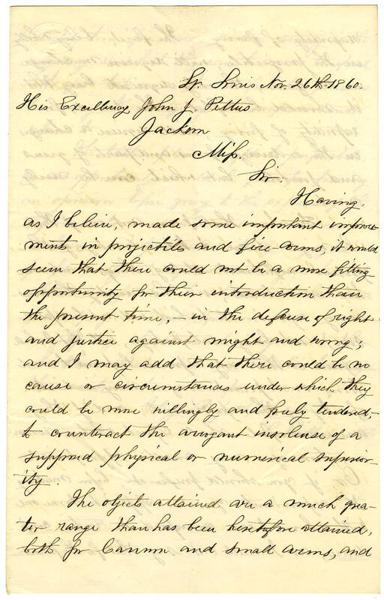 St. Louis Nov. 26th 1860.
His Excellency John J. Pettus
Jackson
Miss.
Sir.
Having,
as I believe, made some important improve-
ments in projectiles and fire-arms, it would
seem that there could not be a more fitting
opportunity for their introduction than
the present time, – in the defense of right
and justice against might and wrong;
and I may add that there could be no
cause or circumstances under which they
could be more willingly and freely tendered,
to counteract the arrogant insolence of a
supposed physical or numerical superior-
ity.
The objects attained are a much grea-
ter range than has been heretofore attained,
both for Cannon and small arms, and